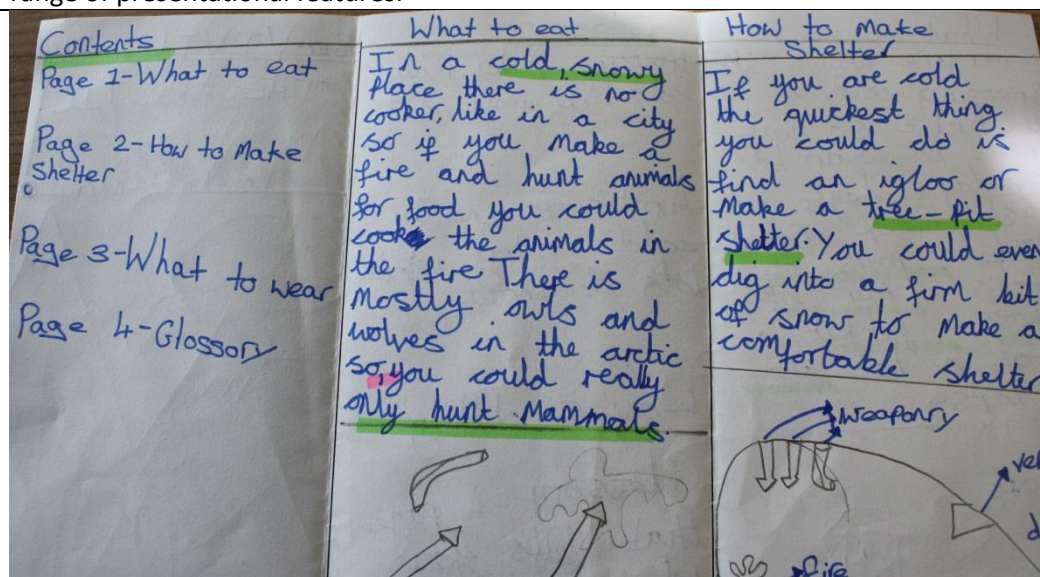 range of presentational features.
Contents
Page 1-What to eat
Page 2-How to Make
Shelter
Page 3-What to wear
Page 4-Glossory
What to eat
In a cold, snowy
Place there is no
cooker, like in a city
so if you make a
fire and hunt animals
for food you could
cook the animals in
the fire There is
mostly owls and
wolves in the arctic
so, you could really
only hunt mammals.
How to make
Shelter
If you are cold
the quickest thing
you could do is
find an igloo or
Make a tree-pit
shelter. You could even
dig into a firm bit
of snow to make a
comfortable shelter
weaponry
fire